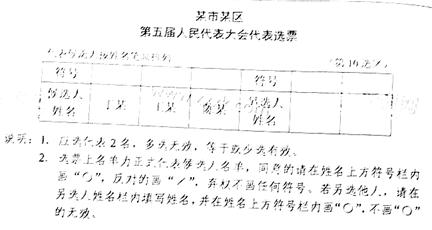 某市某区
第五届人民代表大会代表选票
(代表候选人按姓名笔划排列) (第10选区)
符号 符号
候选人姓名 丁某 王某 陈某 另选人姓名
说明：1. 应选代表2名，多选无效，等于或少选有效。
2. 选票上名单为正式代表候选人名单，同意的请在姓名上方符号栏内
画“○”，反对的画“／”，弃权不画任何符号。若另选他人，请在
另选人姓名栏内填写姓名，并在姓名上方符号栏内画“○”，不画“○”
的无效。